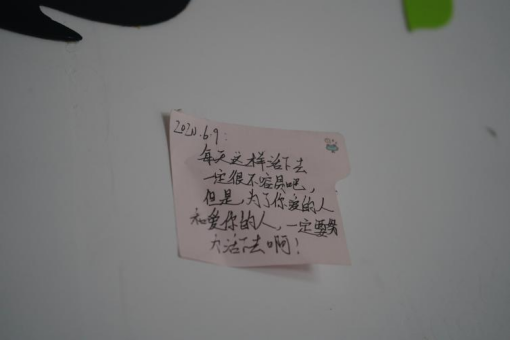 2020.6.9:
每天这样活下去
一定很不容易吧,
但是,为了你爱的人
和爱你的人,一定要努
力活下去啊!